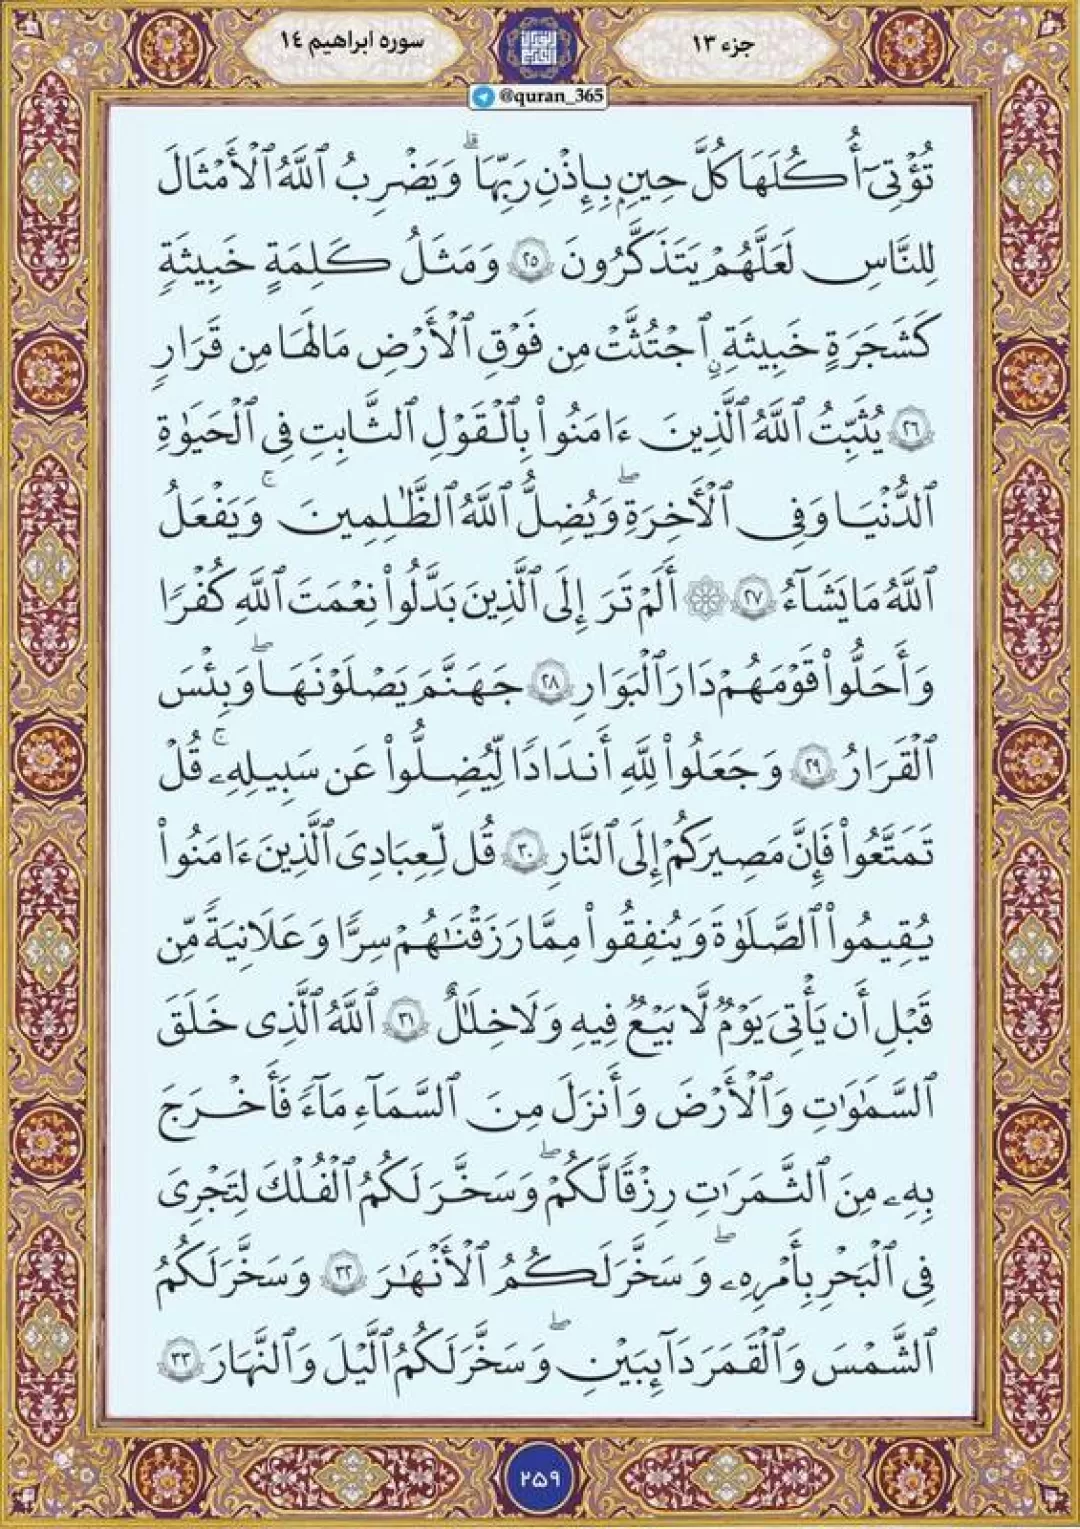 جزء ۱۳
سوره ابراهیم ۱٤
@quran_365
تُؤْتِىٓ أُكُلَهَا كُلَّ حِينٍۭ بِإِذْنِ رَبِّهَاۗ وَيَضْرِبُ ٱللَّهُ ٱلْأَمْثَالَ
لِلنَّاسِ لَعَلَّهُمْ يَتَذَكَّرُونَ ۲۵ وَمَثَلُ كَلِمَةٍ خَبِيثَةٍ
كَشَجَرَةٍ خَبِيثَةٍ ٱجْتُثَّتْ مِن فَوْقِ ٱلْأَرْضِ مَا لَهَا مِن قَرَارٍ
۲۶ يُثَبِّتُ ٱللَّهُ ٱلَّذِينَ ءَامَنُوا۟ بِٱلْقَوْلِ ٱلثَّابِتِ فِى ٱلْحَيَوٰةِ
ٱلدُّنْيَا وَفِى ٱلْأَخِرَةِۖ وَيُضِلُّ ٱللَّهُ ٱلظَّٰلِمِينَۚ وَيَفْعَلُ
ٱللَّهُ مَا يَشَآءُ ۲۷ ۞ أَلَمْ تَرَ إِلَى ٱلَّذِينَ بَدَّلُوا۟ نِعْمَتَ ٱللَّهِ كُفْرًا
وَأَحَلُّوا۟ قَوْمَهُمْ دَارَ ٱلْبَوَارِ ۲۸ جَهَنَّمَ يَصْلَوْنَهَاۖ وَبِئْسَ
ٱلْقَرَارُ ۲۹ وَجَعَلُوا۟ لِلَّهِ أَندَادًا لِّيُضِلُّوا۟ عَن سَبِيلِهِۦۚ قُلْ
تَمَتَّعُوا۟ فَإِنَّ مَصِيرَكُمْ إِلَى ٱلنَّارِ ۳۰ قُل لِّعِبَادِىَ ٱلَّذِينَ ءَامَنُوا۟
يُقِيمُوا۟ ٱلصَّلَوٰةَ وَيُنفِقُوا۟ مِمَّا رَزَقْنَٰهُمْ سِرًّا وَعَلَانِيَةً مِّن
قَبْلِ أَن يَأْتِىَ يَوْمٌ لَّا بَيْعٌ فِيهِ وَلَا خِلَٰلٌ ۳۱ ٱللَّهُ ٱلَّذِى خَلَقَ
ٱلسَّمَٰوَٰتِ وَٱلْأَرْضَ وَأَنزَلَ مِنَ ٱلسَّمَآءِ مَآءً فَأَخْرَجَ
بِهِۦ مِنَ ٱلثَّمَرَٰتِ رِزْقًا لَّكُمْۖ وَسَخَّرَ لَكُمُ ٱلْفُلْكَ لِتَجْرِىَ
فِى ٱلْبَحْرِ بِأَمْرِهِۦۖ وَسَخَّرَ لَكُمُ ٱلْأَنْهَٰرَ ۳۲ وَسَخَّرَ لَكُمُ
ٱلشَّمْسَ وَٱلْقَمَرَ دَآئِبَيْنِۖ وَسَخَّرَ لَكُمُ ٱلَّيْلَ وَٱلنَّهَارَ ۳۳
۲۵۹